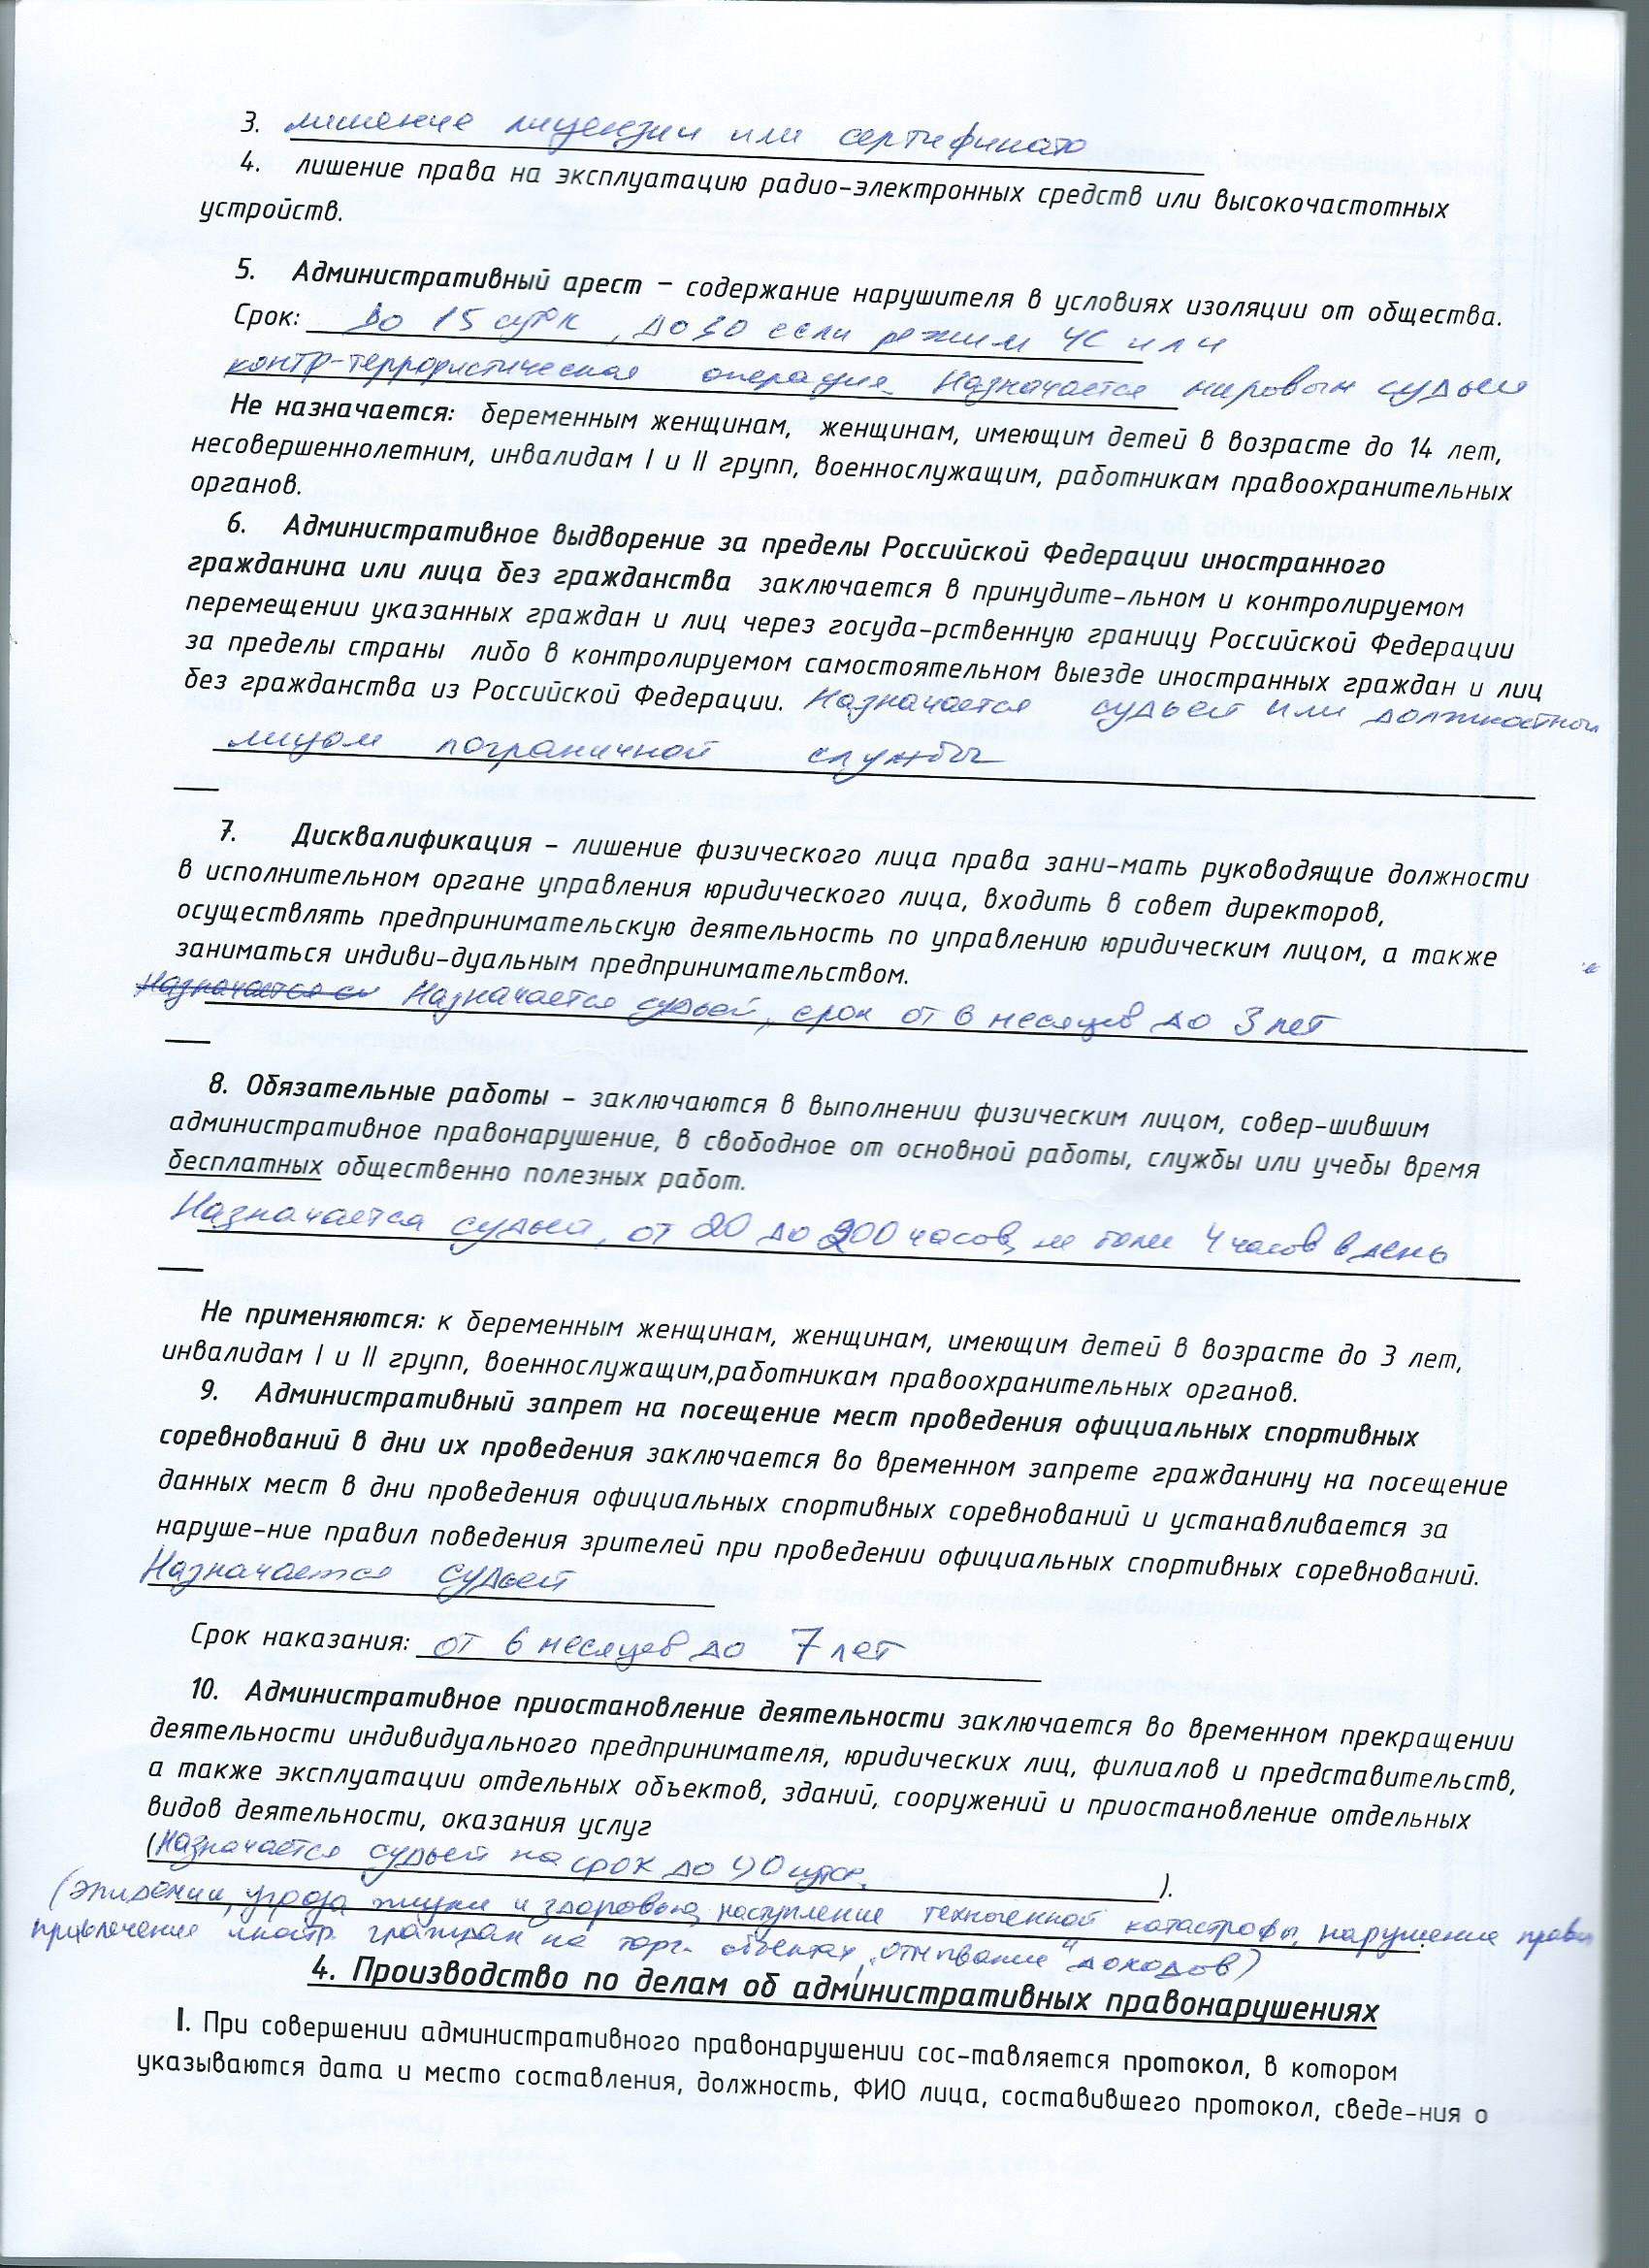 3. лишение лицензии или сертификата
4. лишение права на эксплуатацию радио-электронных средств или высокочастотных
устройств.
5. Административный арест – содержание нарушителя в условиях изоляции от общества.
Срок: до 15 суток, до 30 если режим ЧС или
контр-террористическая операция. Назначается мировым судьей
Не назначается: беременным женщинам, женщинам, имеющим детей в возрасте до 14 лет,
несовершеннолетним, инвалидам I и II групп, военнослужащим, работникам правоохранительных
органов.
6. Административное выдворение за пределы Российской Федерации иностранного
гражданина или лица без гражданства заключается в принудите-льном и контролируемом
перемещении указанных граждан и лиц через госуда-рственную границу Российской Федерации
за пределы страны либо в контролируемом самостоятельном выезде иностранных граждан и лиц
без гражданства из Российской Федерации. Назначается судьей или должностным
лицом пограничной службы
7. Дисквалификация – лишение физического лица права зани-мать руководящие должности
в исполнительном органе управления юридического лица, входить в совет директоров,
осуществлять предпринимательскую деятельность по управлению юридическим лицом, а также
заниматься индиви-дуальным предпринимательством.
Назначается су Назначается судьей, срок от 6 месяцев до 3 лет
8. Обязательные работы – заключаются в выполнении физическим лицом, совер-шившим
административное правонарушение, в свободное от основной работы, службы или учебы время
бесплатных общественно полезных работ.
Назначается судьей, от 20 до 200 часов, не более 4 часов в день
Не применяются: к беременным женщинам, женщинам, имеющим детей в возрасте до 3 лет,
инвалидам I и II групп, военнослужащим,работникам правоохранительных органов.
9. Административный запрет на посещение мест проведения официальных спортивных
соревнований в дни их проведения заключается во временном запрете гражданину на посещение
данных мест в дни проведения официальных спортивных соревнований и устанавливается за
наруше-ние правил поведения зрителей при проведении официальных спортивных соревнований.
Назначается судьей
Срок наказания: от 6 месяцев до 7 лет
10. Административное приостановление деятельности заключается во временном прекращении
деятельности индивидуального предпринимателя, юридических лиц, филиалов и представительств,
а также эксплуатации отдельных объектов, зданий, сооружений и приостановление отдельных
видов деятельности, оказания услуг
(Назначается судьей на срок до 90 суток. ).
(эпидемии, угроза жизни и здоровью, наступление техногенной катастрофы, нарушение правил
привлечения иностр. граждан на торг. объектах, "отмывание" доходов)
4. Производство по делам об административных правонарушениях
I. При совершении административного правонарушении сос-тавляется протокол, в котором
указываются дата и место составления, должность, ФИО лица, составившего протокол, сведе-ния о